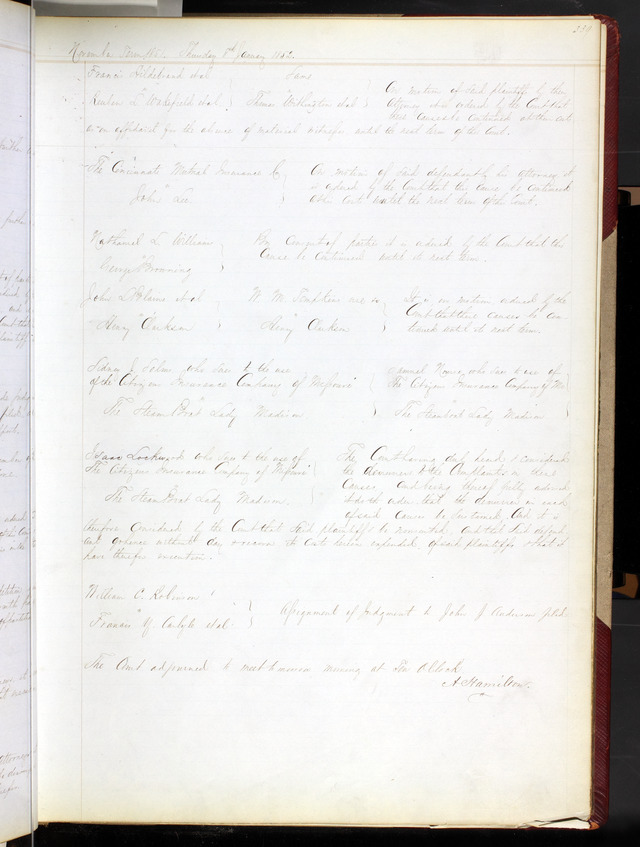 November Term 1851. Thursday 8th January 1852.
Francis Hildebrand et al
Same
Reuben L Wakefield et al
Thomas Withington et al
On motion of said plaintiffs by their
attorney it is ordered by the Court that
these causes be continued at their cost
on an affidavit for the absence of material witnesses until the next term of the Court.
The Cincinnati Mutual Insurance Co
John Lee
On motion of said defendant by his attorney it
is ordered by the Court that this cause be continued
at his costs until the next term of the Court.
Nathaniel L. William
George Browning
By consent of parties it is ordered by the Court that this
cause be continued until the next term.
John et al
Henry
W. M. Tompkins use
Henry
It is on motion ordered by the
Court that these causes be con-
tinued until the next term
Sidney J. who sues to the use
of the Citizens Insurance Company of Missouri
The Steam Boat Lady Madison
Samuel who sues to use of
The Citizens Insurance Company of Mo
The Steamboat Lady Madison
Isaac who sues to the use of
The Citizens Insurance Company of Missouri
The Steam Boat Lady Madison.
The Court having duly heard & considered
the demurrers to the Complaints in these
Causes and being thereof fully advised
doth order that the demurrer in each
of said causes be sustained. And it is
therefore considered by the Court that said plaintiffs be nonsuited, and that said defend-
ant go hence without day & recover the costs herein expended of said plaintiffs & that
have therefor execution.
William C. Robinson
Francis Y. Carlyle et al.
Assignment of Judgment to John J. Anderson filed
The Court adjourned to meet tomorrow morning at Ten O'Clock
A. Hamilton.